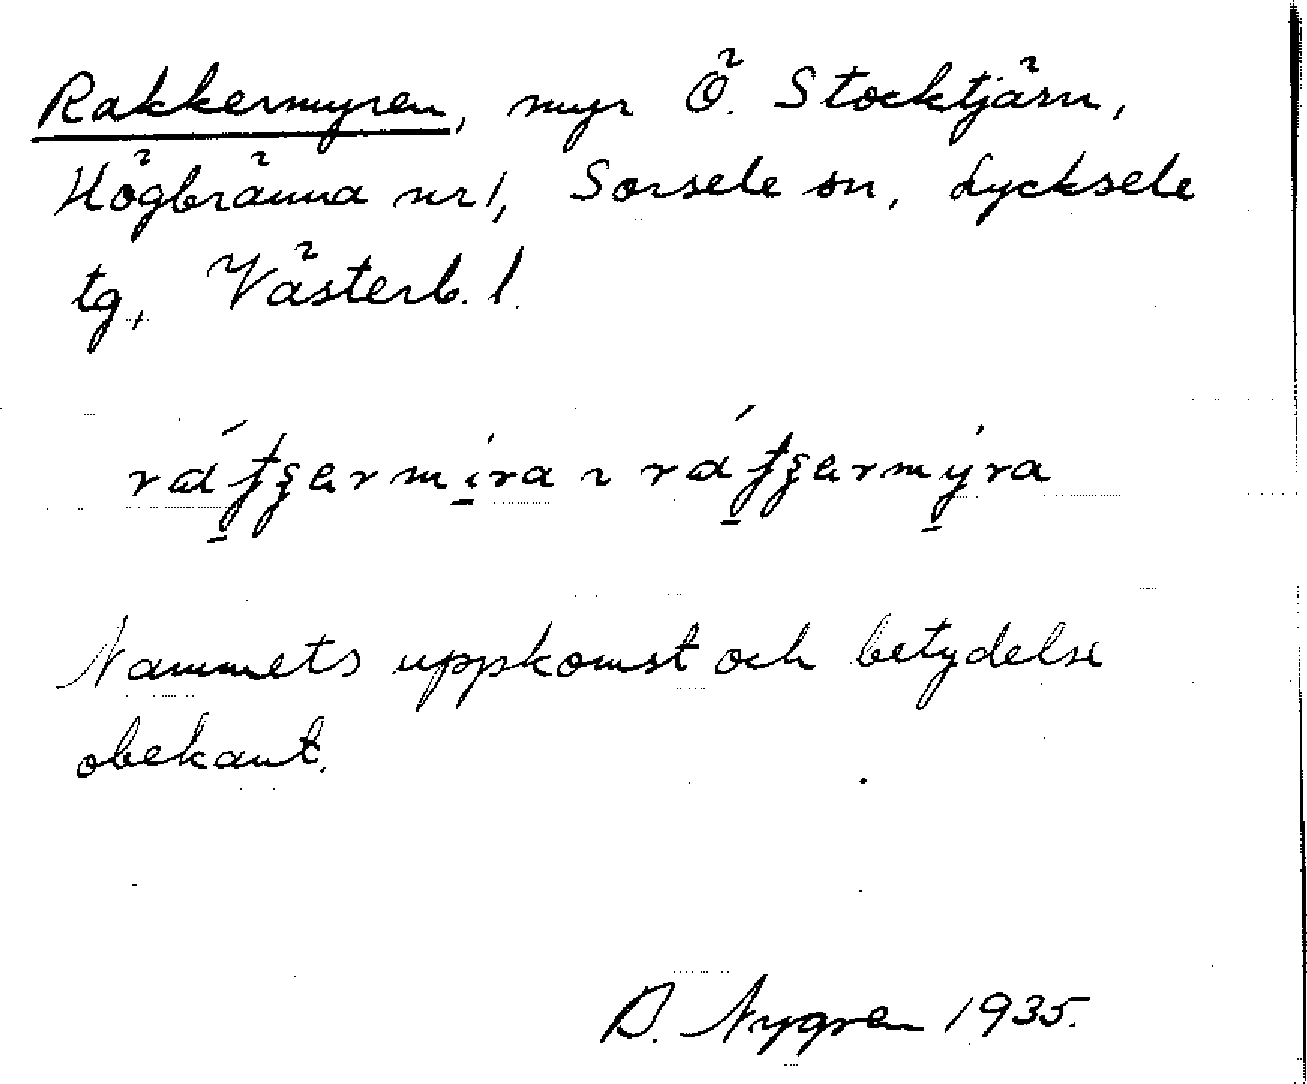 Rakkermyren, myr Ö. Stocktjärn,
Högbränna nr 1, Sorsele sn, Lycksele
tg, Västerb. l.
Namnets uppkomst och betydelse
obekant.
Nygren 1935.